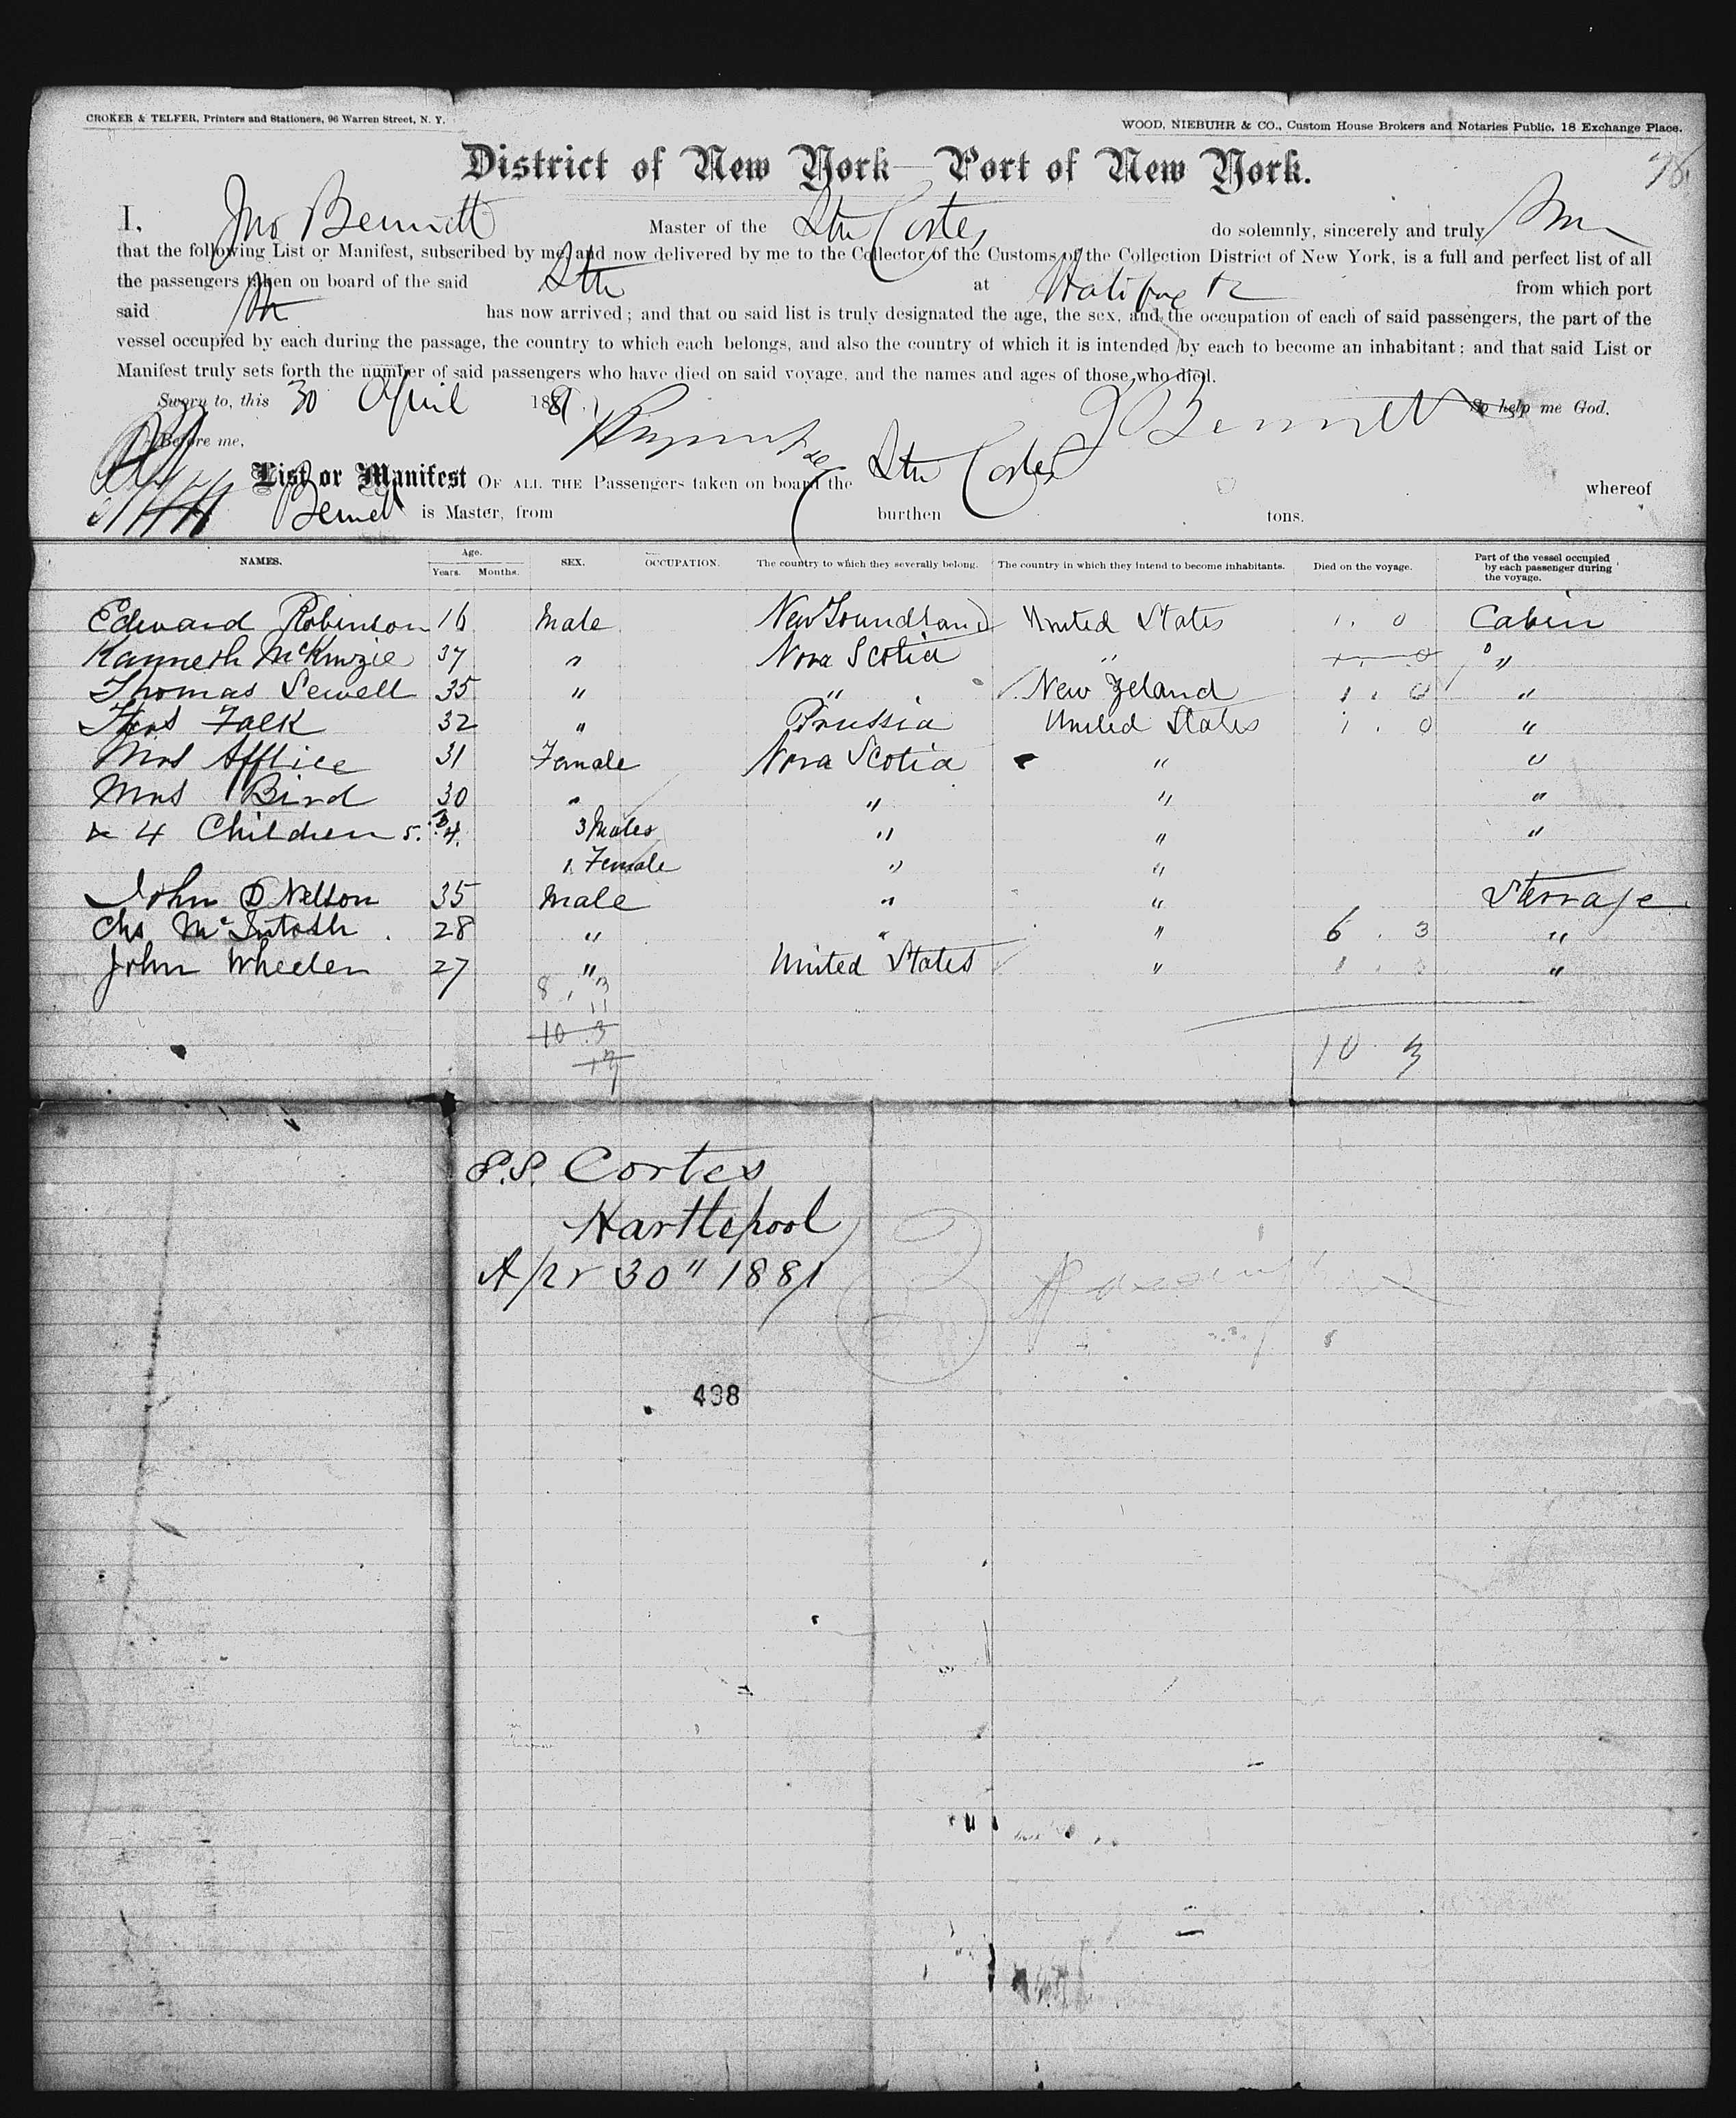 CROKER & TELFER, Printers and Stationers, 96 Warren Street, N. Y.
WOOD, NIEBUHR & CO., Custom House Brokers and Notaries Public, 18 Exchange Place.
District of New York—Port of New York.
I, Jno Bennett Master of the Str Cortes do solemnly, sincerely and truly
that the following List or Manifest, subscribed by me, and now delivered by me to the Collector of the Customs of the Collection District of New York, is a full and perfect list of all
the passengers taken on board of the said Str at Halifax from which port
said Str has now arrived; and that on said list is truly designated the age, the sex, and the occupation of each of said passengers, the part of the
vessel occupied by each during the passage, the country to which each belongs, and also the country of which it is intended by each to become an inhabitant; and that said List or
Manifest truly sets forth the number of said passengers who have died on said voyage, and the names and ages of those who died.
Sworn to, this 30 April 1881. J Bennett So help me God.
Before me,
List or Manifest OF ALL THE Passengers taken on board the Str Cortes whereof
Bennet is Master, from burthen tons.
NAMES. Age. Years. Months. SEX. OCCUPATION. The country to which they severally belong. The country in which they intend to become inhabitants. Died on the voyage. Part of the vessel occupied by each passenger during the voyage.
Edward Robinson 16 Male Newfoundland United States 1. 0 Cabin
Kanneth McKinzie 37 " Nova Scotia " 1. 0 "
Thomas Sewell 35 " " New Zeland 1. 0 "
Thos Falk 32 " Prussia United States 1. 0 "
Mrs Afflice 31 Female Nova Scotia " "
Mrs Bird 30 " " " "
& 4 Children 5. 4. 3 Males " " "
1 Female " "
John D Nelson 35 Male " " Sterrage
Chs McIntosh 28 " " " 6. 3 "
John Wheelen 27 " United States " "
10 3
10. 3
S.S. Cortes
Hartlepool
Apr 30" 1881
438